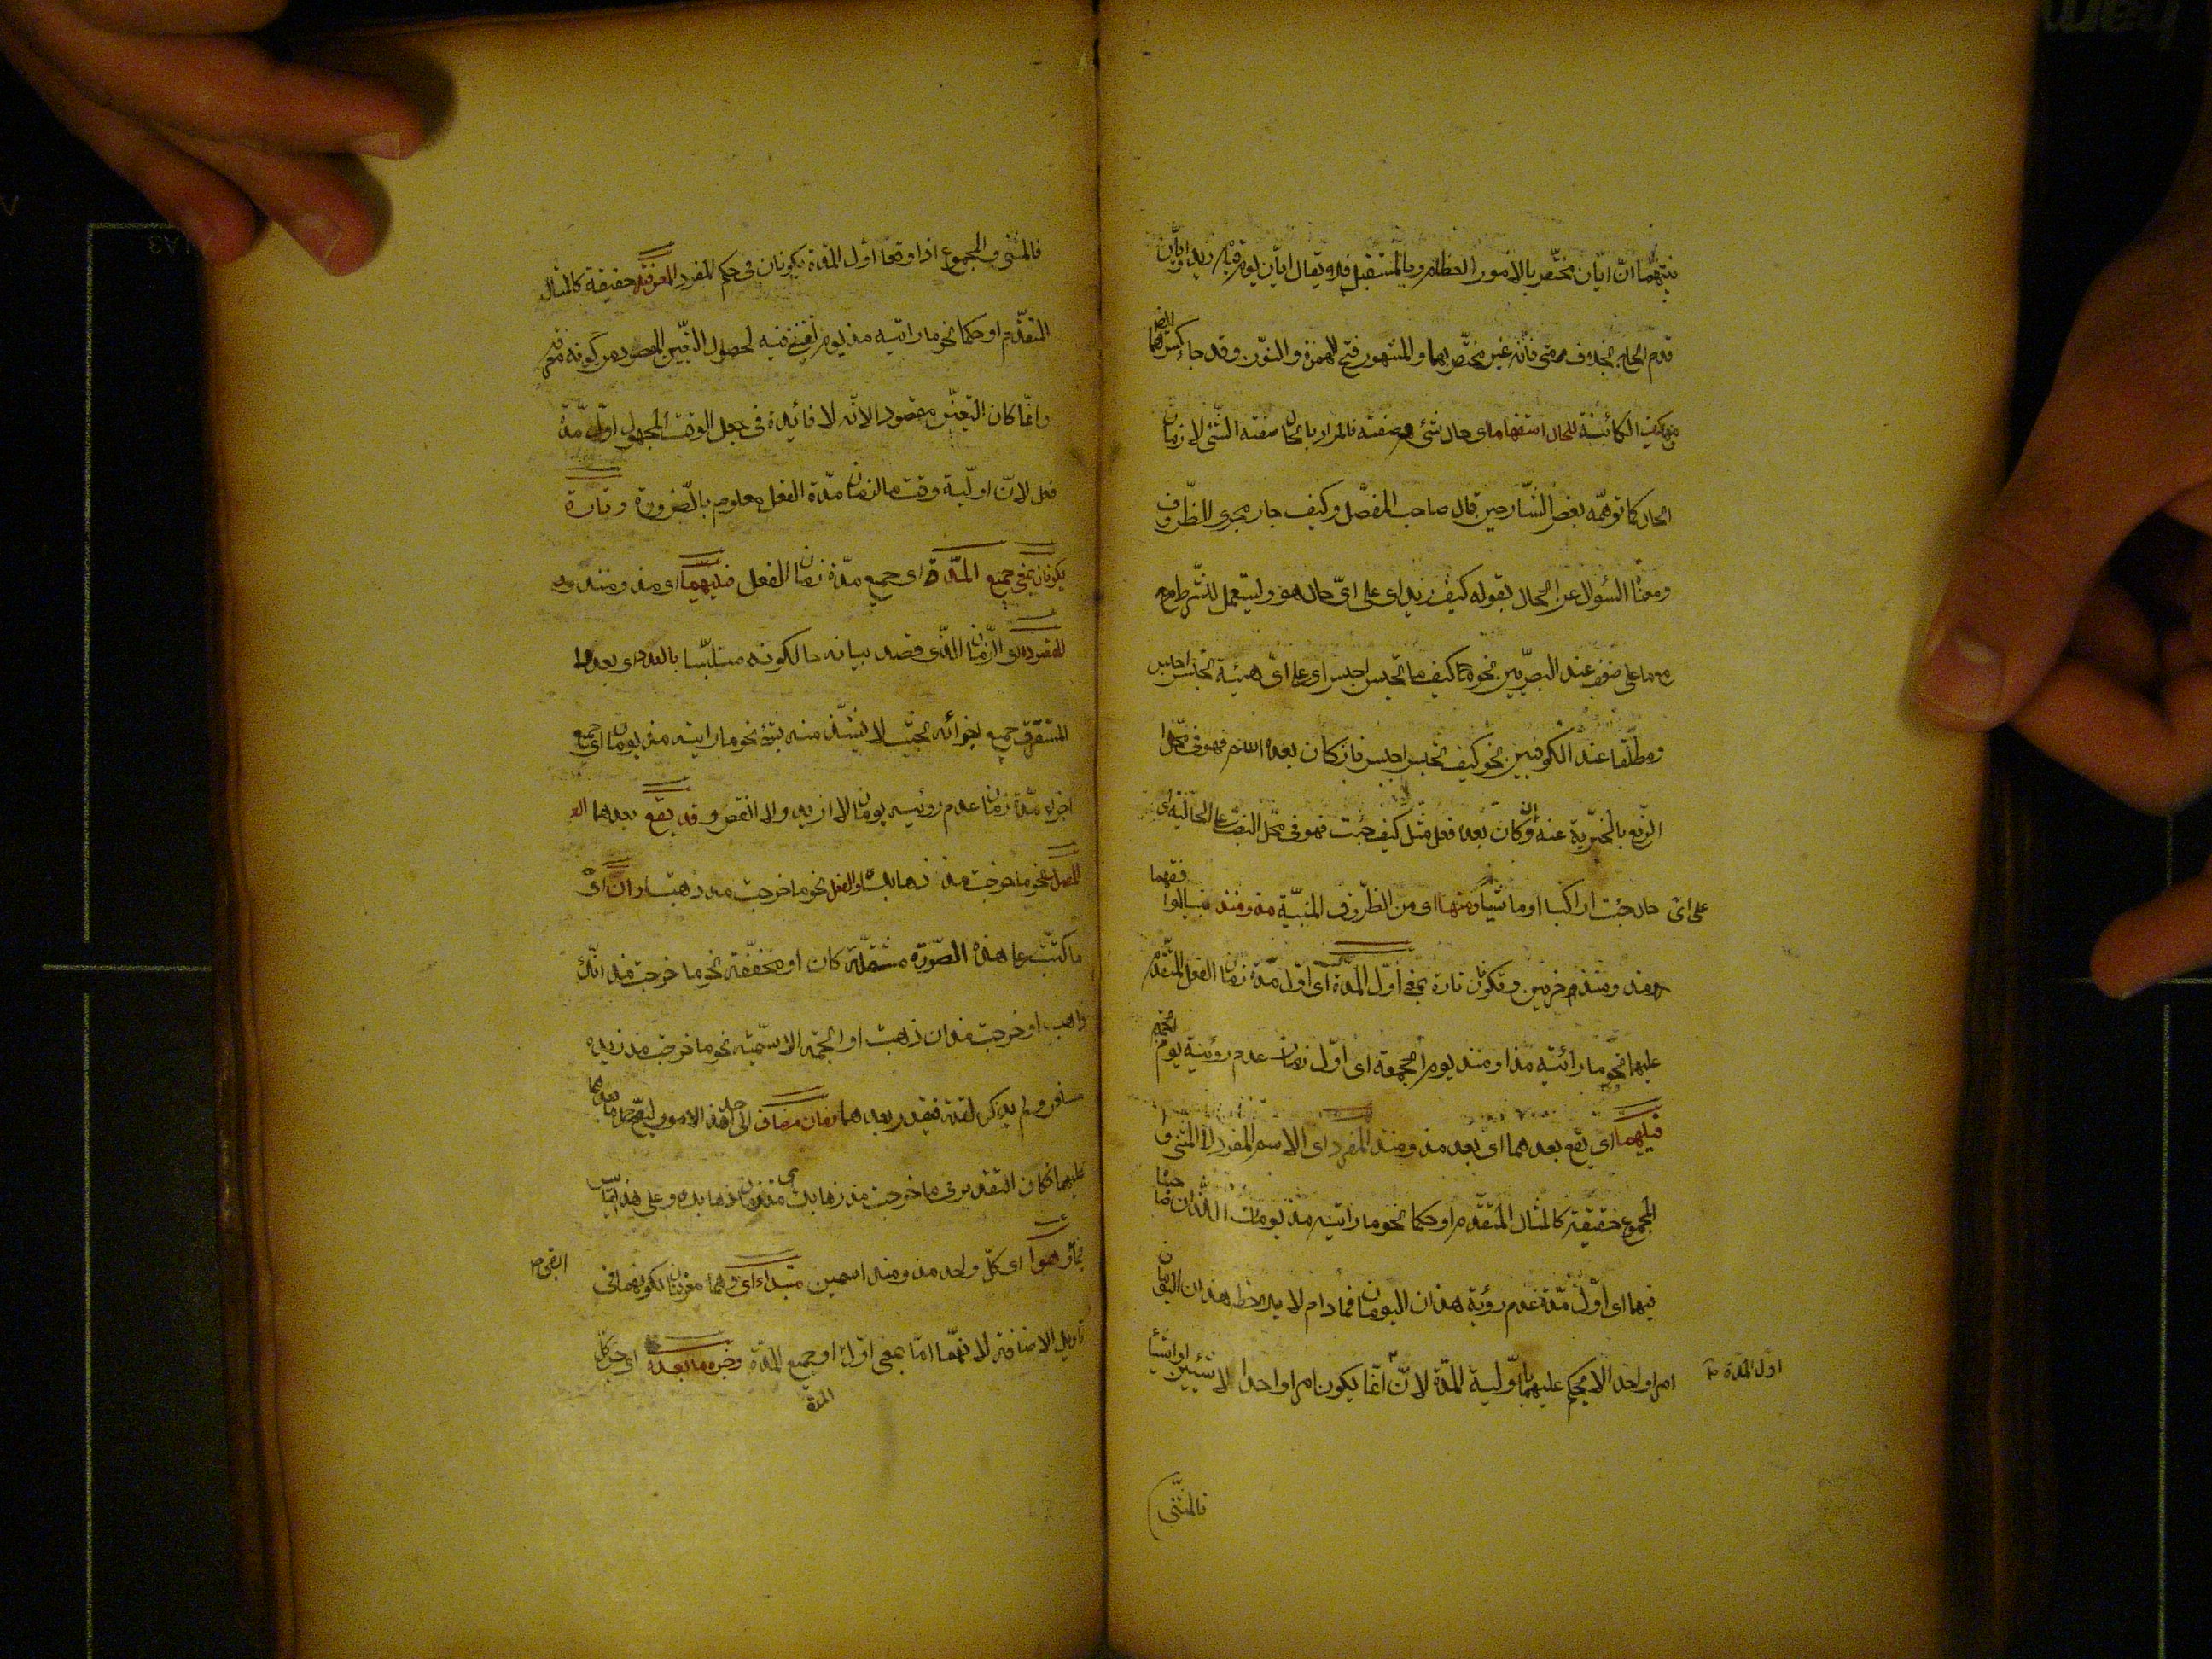 بينهما انّ ايّان مختصّ بالامور العظام وبالمستقبل فلا يقال ايّان يوم قيام زيد وايّان
قدم الحاج بخلاف متى فانّه غير مختصّ بهما والمشهور فتح الهمزة والنون وقد جاء كسرهما
ومنها كيف الكائنة للحال استفهاما اى حال شئ وصفته فالمراد بالحال صفة الشئ لا زمان
الحال كما توهّمه بعض الشّارحين قال صاحب المفصّل وكيف جار مجرى الظّروف
ومعناه السؤال عن الحال بقوله كيف زيد اى على اىّ حال هو ويستعمل للشّرط مع
ما على ضعف عند البصريّين نحو كيف ما تجلس اجلس اى على اىّ هيئة تجلس اجلس
ومطلقا عند الكوفيين نحو كيف تجلس اجلس فان كان بعده اسم فهو فى محل
الرّفع بالخبريّة عنه وان كان بعده فعل مثل كيف جئت فهو فى محل النصب على الحاليّة اى
على اىّ حال جئت اراكبا او ماشيا ومنها اى من الظّروف المبنيّة مذ ومنذ
مذ ومنذ وتكونان تارة بمعنى اوّل المدة اى اوّل مدّة زمان الفعل المتقدّم
عليهما نحو ما رأيته مذ او منذ يوم الجمعة اى اوّل زمان عدم رؤيته يوم الجمعة
فيليهما اى يقع بعدهما اى بعد مذ ومنذ المفرد اى الاسم المفرد لا المثنى و
المجموع حقيقة كالمثال المتقدّم او حكما نحو ما رأيته مذ يومان اللذان
فيهما اى اوّل مدّة عدم رؤية هذان اليومان فما دام لا يلاحظ هذان اليومان
امرا واحدا لا يحكم عليهما باوّلية المدّة لانّ انّما يكون امرا واحدا لا شيئين او اشيأ
اوّل المدّة
فالمثنى
فالمثنى والمجموع اذا وقعا اوّل المدّة يكونان فى حكم المفرد المعرفة حقيقة كالمثال
المتقدّم او حكما نحو ما رأيته مذ يوم لقيتنى فيه لحصول التعيّن المقصود من كونه معرفة
وانّما كان التعيّن مقصودا لانّه لا فائدة فى جعل الوقت المجهول اوّل مدّة
فعل لانّ اوّلية وقت ما لزمان مدّة الفعل معلوم بالضرورة وتارة
يكونان بمعنى جميع المدّة اى جميع مدّة زمان الفعل فيليهما اى مذ ومنذ
المقصود اى الزّمان الذّى قصد بيانه حال كونه متلبّسا بالعدد اى بعدد
المستغرق جميع اجزائه بحيث لا يشذّ منه شئ نحو ما رأيته مذ يومان اى جميع
اجزاء مدّة زمان عدم رؤيته يومان لا ازيد ولا انقص وقد يقع بعدهما
المصدر نحو ما خرجت مذ ذهابك او الفعل نحو ما خرجت مذ ذهبت او ان او
ما كتبت على هذه الصّورة مثقلة كان او مخفّفة نحو ما خرجت مذ انّك
ذاهب او خرجت مذ ان ذهبت او الجملة الاسميّة نحو ما خرجت مذ زيد
مسافر ولم يذكر لقلته فيقدر بعدهما زمان مضاف الى احد هذه الامور ليصحّ حمل ما بعدهما
عليهما فكان التقدير فى ما خرجت مذ ذهابك مذ زمان ذهابك وعلى هذا القياس
وهو اى كلّ واحد مذ ومنذ اسمين مبتداء اى وهما معرفتان لكونهما فى
تأويل الاضافة لانّهما امّا بمعنى اوّل او جميع المدّة وخبره ما بعده اى خبر كلّ
المدّة